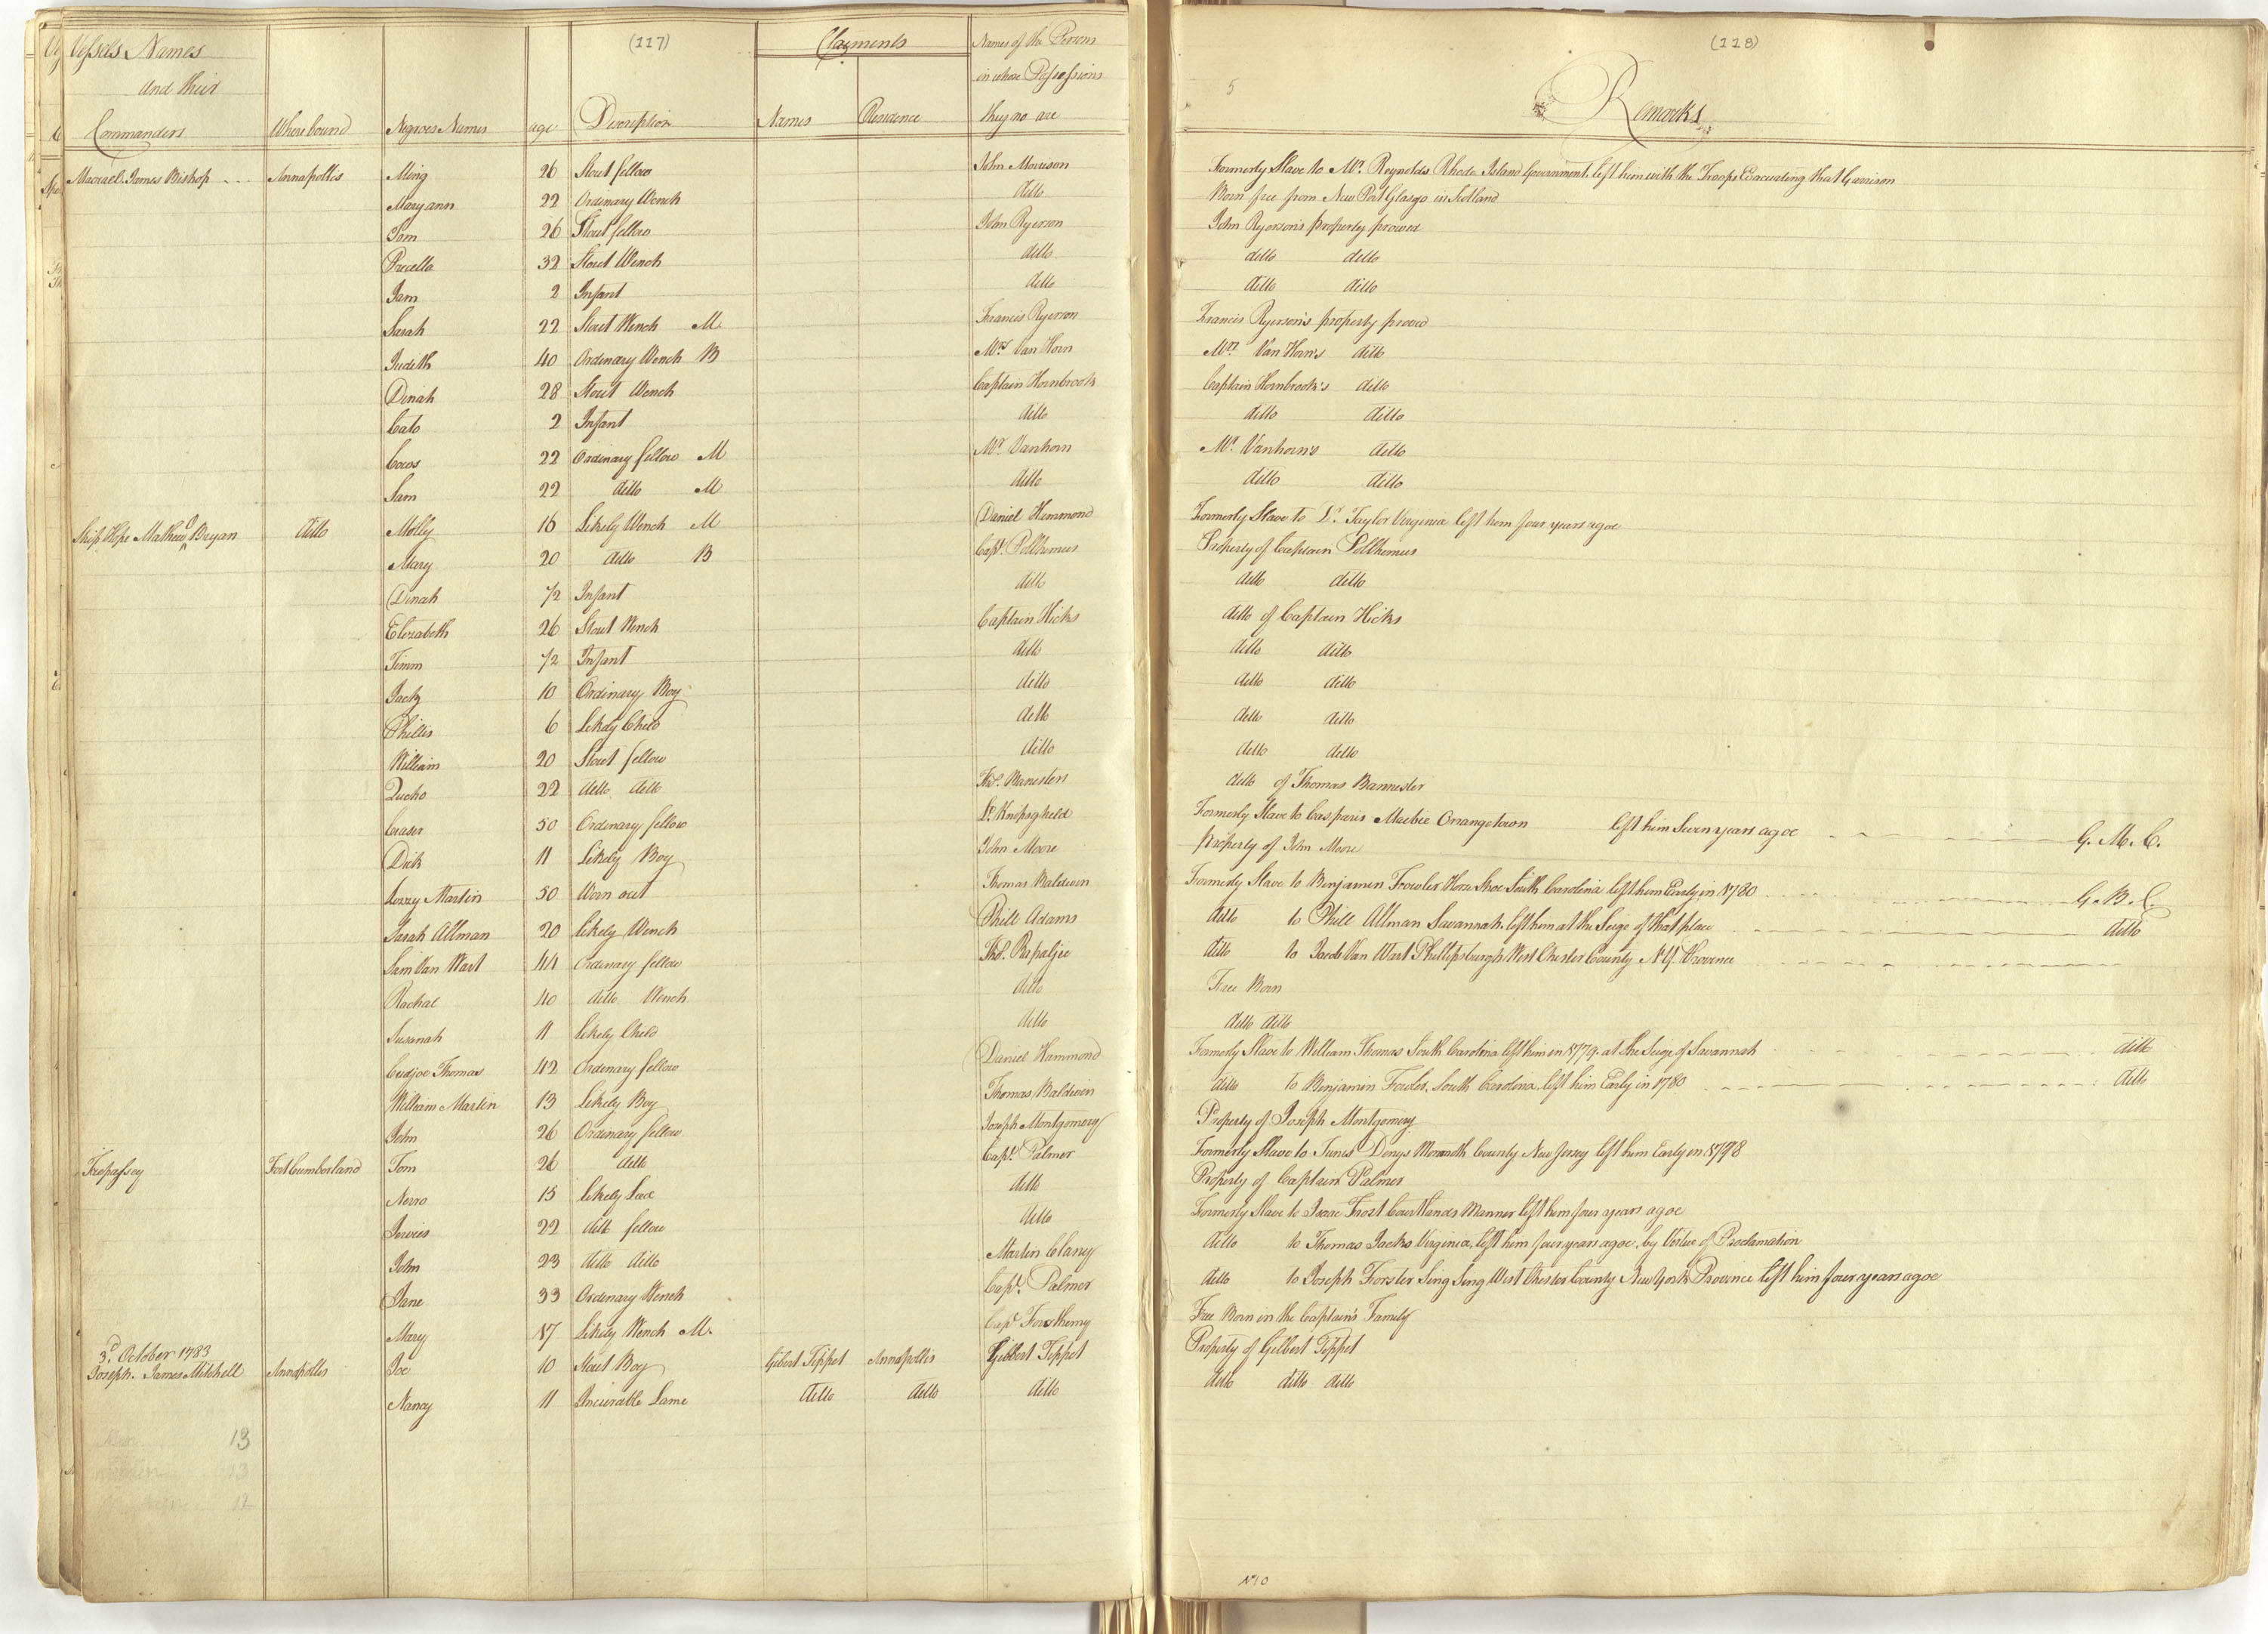 (117)
Vessels Names
and their
Commanders
Where bound
Negroes Names
age
Description
Claymants
Names
Residence
Names of the Persons
in whose Possessions
they no are
(118)
5
Remarks
Macrael James Bishop Annapollis Ming 26 Stout fellow John Morrison Formerly Slave to Mr. Reynolds Rhode Island Government, left him with the Troops Evacuating that Garrison
Maryann 22 Ordinary Wench ditto Born free from New Port Glasgo in Scotland
Sam 26 Stout fellow John Ryerson John Ryerson's property proved
Precella 32 Stout Wench ditto ditto ditto
Jam 2 Infant ditto ditto ditto
Sarah 22 Stout Wench M Francis Ryerson Francis Ryerson's property proved
Judith 40 Ordinary Wench B Mrs Van Horn Mrs Van Horn's ditto
Dinah 28 Stout Wench Captain Hornbrook Captain Hornbrook's ditto
Cato 2 Infant ditto ditto ditto
22 Ordinary fellow M Mr. Vanhorn Mr. Vanhorn's ditto
Sam 22 ditto M ditto ditto ditto
Ship Hope Mathew Bryan ditto Molly 16 Likely Wench M Daniel Hammond Formerly Slave to Taylor Virginia left him four years agoe
Mary 20 ditto B Capt. Pollhemus Property of Captain Pollhemus
Dinah 1/2 Infant ditto ditto ditto
Elizabeth 26 Stout Wench Captain Hicks ditto of Captain Hicks
Timm 1/2 Infant ditto ditto ditto
Jack 10 Ordinary Boy ditto ditto ditto
Phillis 6 Likely Child ditto ditto ditto
William 20 Stout fellow ditto ditto ditto
22 ditto ditto Thos. Banesters ditto of Thomas Bannester
Ceaser 50 Ordinary fellow Formerly Slave to Casparis Maebee Orrangetown left him Seven years agoe G. M. C.
Dick 11 Likely Boy John Moore Property of John Moore
Martin 50 Worn out Thomas Baldwin Formerly Slave to Benjamin Fowler Horse Shoe South Carolina left him Early in 1780 G. B. C.
Sarah Allman 20 Likely Wench Phill Adams ditto to Phill Allman Savannah left him at the Seige of that place ditto
Sam Van Wart 44 Ordinary fellow Thos. Rapaljee ditto to Jacob Van Wart Phillipsburgh West Chester County N.Y. Province
Rachal 40 ditto Wench ditto Free Born
Susanah 11 Likely Child ditto ditto ditto
Cudjoe Thomas 42 Ordinary fellow Daniel Hammond Formerly Slave to William Thomas South Carolina left him in 1779 at the Seige of Savannah ditto
William Martin 13 Likely Boy Thomas Baldwin ditto to Benjamin Fowler, South Carolina, left him Early in 1780 ditto
John 26 Ordinary fellow Joseph Montgomery Property of Joseph Montgomery
Trepassey Fort Cumberland Tom 26 ditto Capt. Palmer Formerly Slave to Tunis Denys Monmoth County New Jersey left him Early in 1778
Nerro 15 Likely Lad ditto Property of Captain Palmer
22 ditto fellow ditto Formerly Slave to Isaac Frost Courtlands Mannor left him four years agoe
John 23 ditto ditto Martin Clany ditto to Thomas Jacks Virginia, left him four years agoe, by Virtue of Proclamation
Jane 33 Ordinary Wench Capt. Palmer ditto to Joseph Forster Sing Sing West Chester County New York Province left him four years agoe
Mary 17 Likely Wench M. Capt. Free Born in the Captain's Family
3d. October 1783
Joseph. James Mitchell Annapollis Joe 10 Stout Boy Gibert Tippet Annapollis Gibbert Tippet Property of Gilbert Tippet
Nancy 11 Incurable Lame ditto ditto ditto ditto ditto ditto
13
13
12
No 10